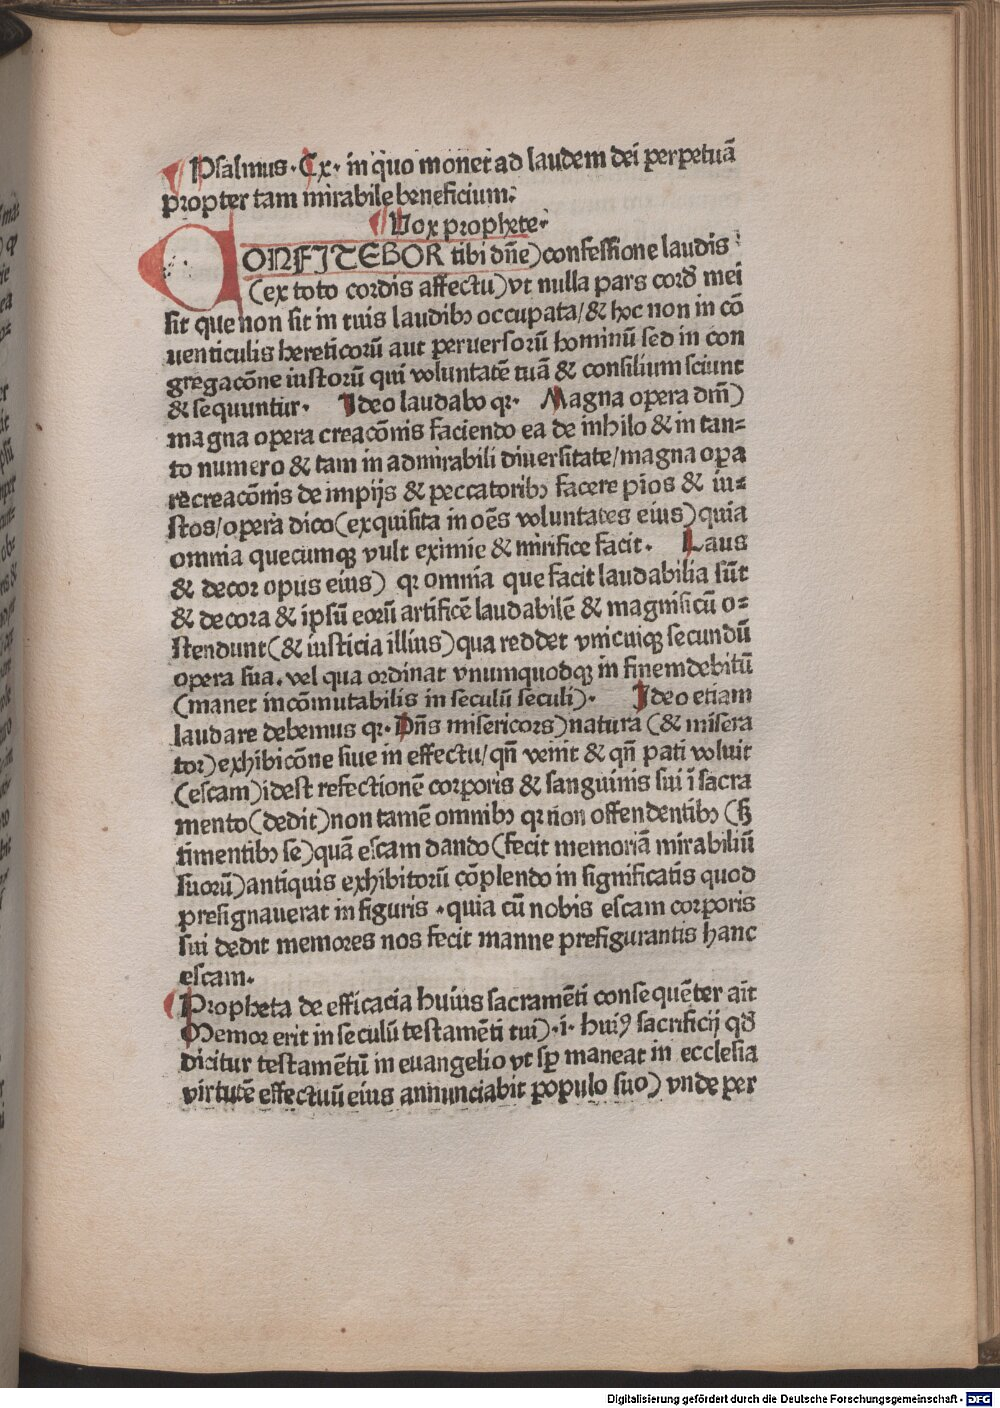 Psalmus · Cx · in quo monet ad laudem dei perpetuā
propter tam mirabile beneficium:
Vox prophete ·
CONFITEBOR tibi dn̄e) confessione laudis
(ex toto cordis affectu) vt nulla pars cord̄ mei
sit que non sit in tuis laudibꝫ occupata/& hoc non in cō
uenticulis hereticorū aut peruersorū hominū sed in con
gregacōne iustorū qui voluntatē tuā & consilium sciunt
& sequuntur · Ideo laudabo qꝛ · Magna opera dn̄i)
magna opera creacōnis faciendo ea de inhilo & in tan⸗
to numero & tam in admirabili diuersitate/magna oꝑa
recreacōnis de impijs & peccatoribꝫ facere pios & iu⸗
stos/opera dico (exquisita in oēs voluntates eius) quia
omnia quecumqꝫ vult eximie & mirifice facit · Laus
& decor opus eius) qꝛ omnia que facit laudabilia sūt
& decora & ipsū eorū artificē laudabilē & magnificū o⸗
stendunt (& iusticia illius) qua reddet vnicuiqꝫ secundū
opera sua . vel qua ordinat vnumquodqꝫ in finem debitū
(manet incōmutabilis in seculū seculi) · Ideo etiam
laudare debemus qꝛ · Dn̄s misericors) natura (& misera
tor) exhibicōne siue in effectu/qn̄ venit & qn̄ pati voluit
(escam) idest refectionē corporis & sanguinis sui ī sacra
mento (dedit) non tamē omnibꝫ qꝛ non offendentibꝫ (sꝫ
timentibꝫ se) quā escam dando (fecit memoriā mirabiliū
suorū) antiquis exhibitorū cōplendo in significatis quod
presignauerat in figuris · quia cū nobis escam corporis
sui dedit memores nos fecit manne prefigurantis hanc
escam ·
Propheta de efficacia huius sacramēti consequēter ait
Memor erit in seculū testamēti tui) · i · huiꝯ sacrificij qd̄
dicitur testamētū in euangelio vt sꝑ maneat in ecclesia
virtutē effectuū eius annunciabit populo suo) vnde per
Digitalisierung gefördert durch die Deutsche Forschungsgemeinschaft - DFG